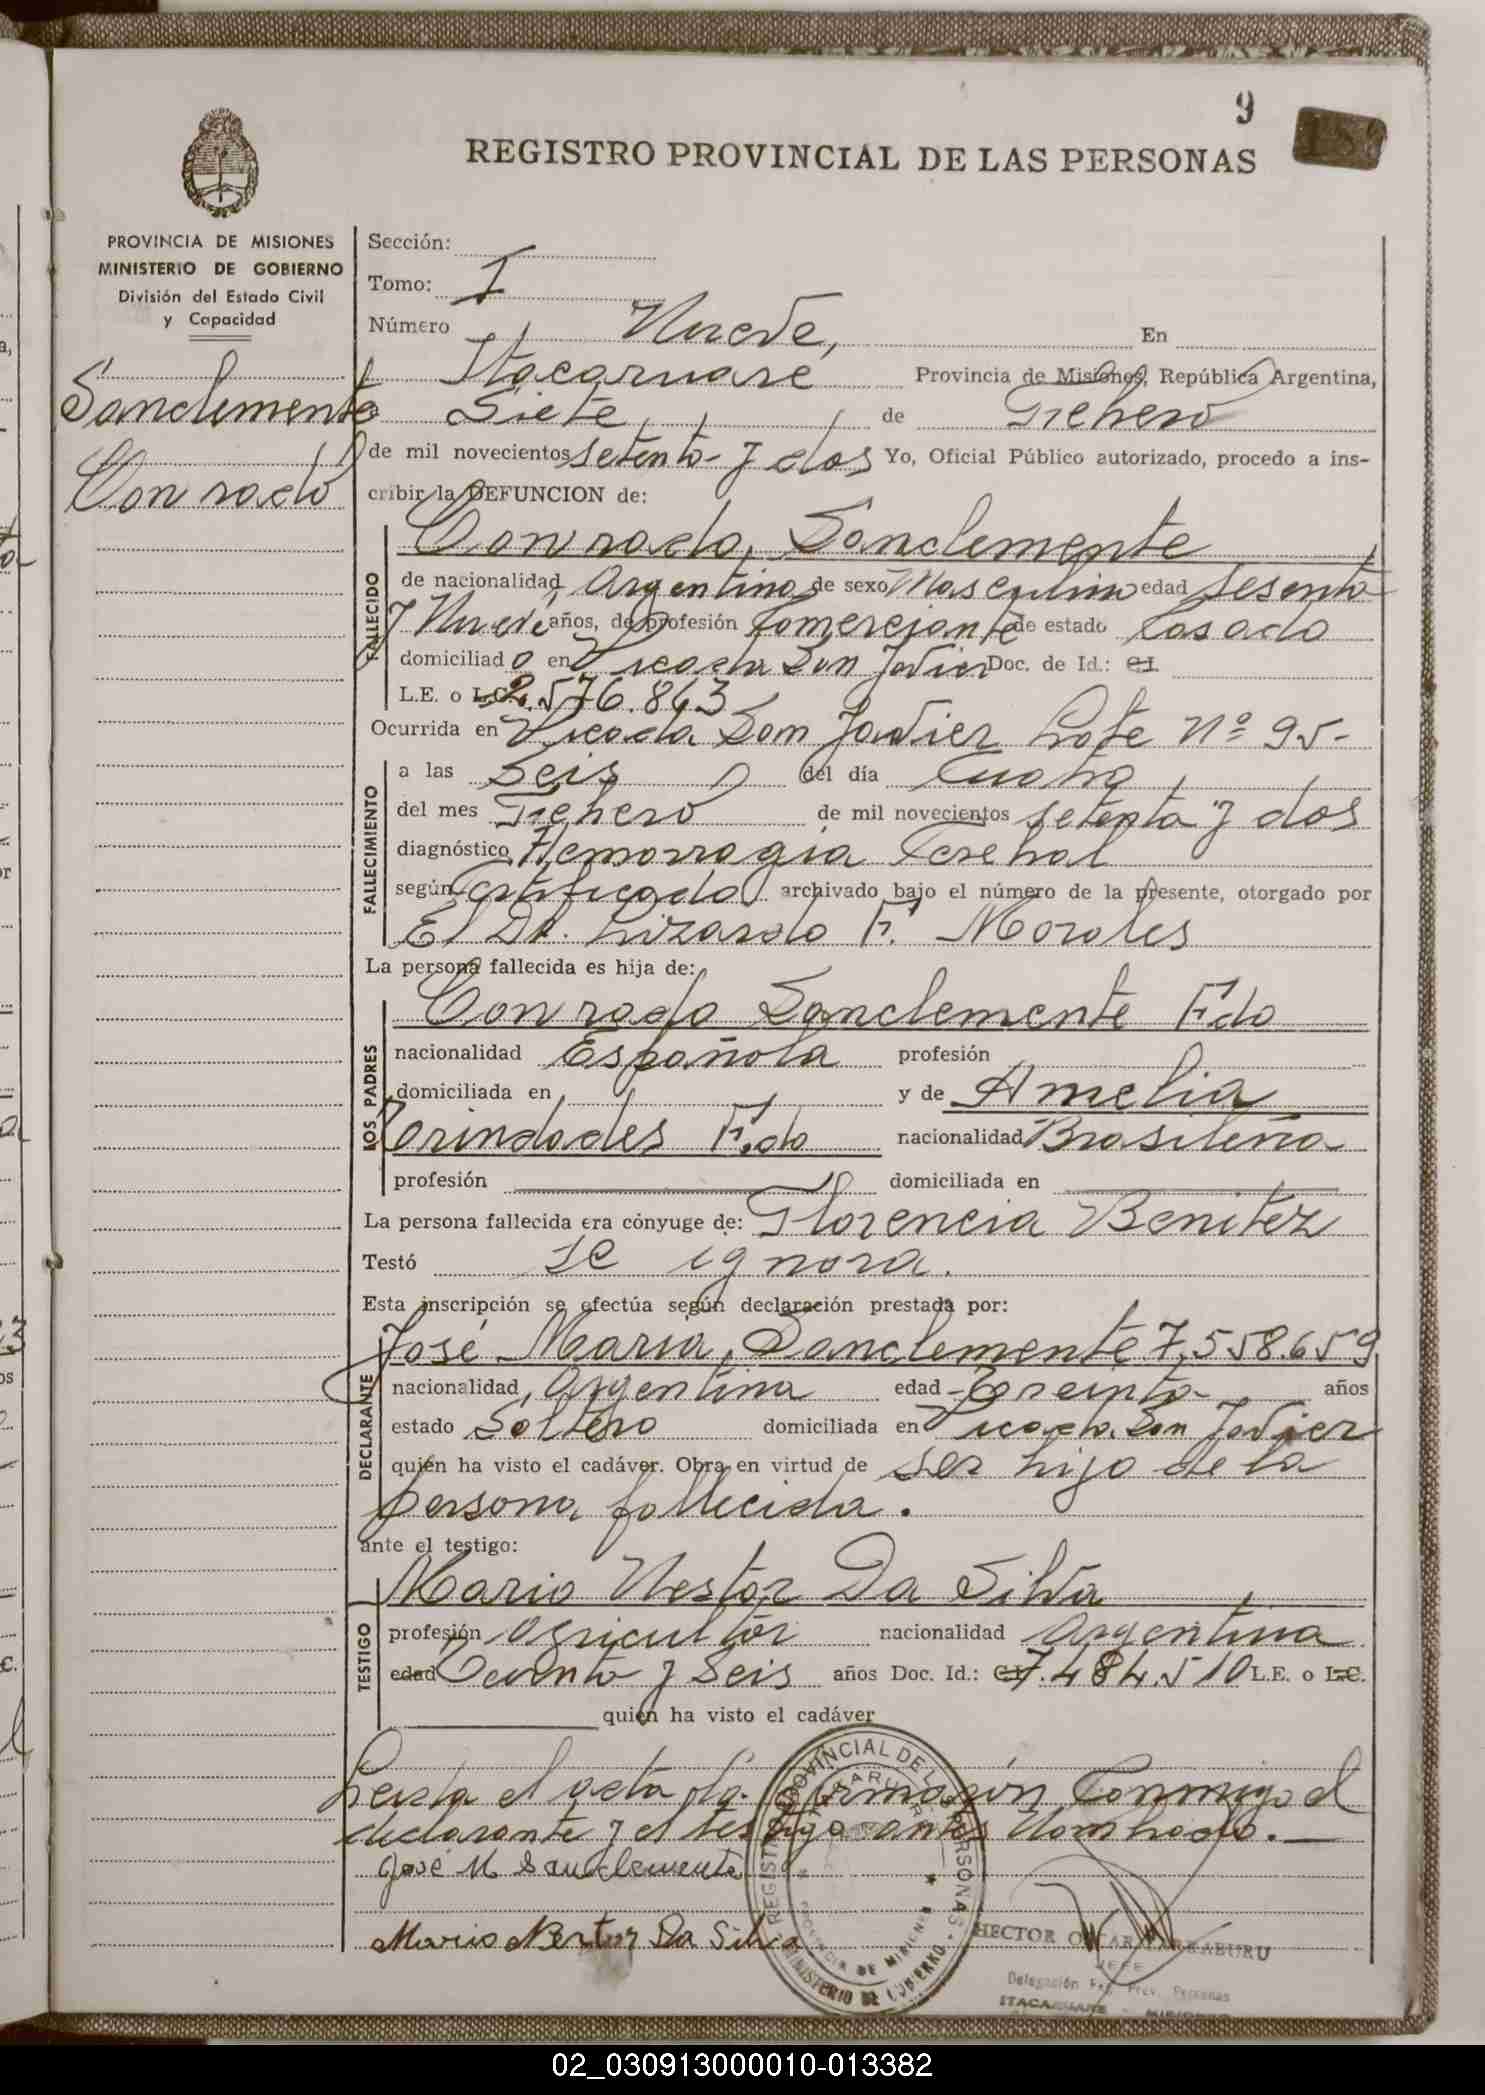 9
REGISTRO PROVINCIAL DE LAS PERSONAS
PROVINCIA DE MISIONES
MINISTERIO DE GOBIERNO
División del Estado Civil
y Capacidad
Sanclemente
Conrado
Sección:
Tomo: I
Número Nueve, En
Itacaruare Provincia de Misiones, República Argentina,
a Siete de Enero
de mil novecientos setenta y dos Yo, Oficial Público autorizado, procedo a ins-
cribir la DEFUNCION de:
Conrado, Sanclemente
FALLECIDO
de nacionalidad Argentina de sexo Masculino edad sesenta
y Nueve años, de profesión Comerciante de estado Casado
domiciliado en Picada San Javier Doc. de Id.: C.I.
L.E. o L.C. 2.576.843
Ocurrida en Picada San Javier Lote Nº 95-
FALLECIMIENTO
a las Seis del día Cuatro
del mes Enero de mil novecientos setenta y dos
diagnóstico Hemorragia Cerebral
según Certificado archivado bajo el número de la presente, otorgado por
El Dr. Lizardo F. Morales
La persona fallecida es hija de:
LOS PADRES
Conrado Sanclemente Fdo
nacionalidad Española profesión
domiciliada en y de Amelia
Trindades Fdo nacionalidad Brasileña
profesión domiciliada en
La persona fallecida era cónyuge de: Florencia Benitez
Testó se ignora.
Esta inscripción se efectúa según declaración prestada por:
DECLARANTE
José Maria, Sanclemente 7.558.659
nacionalidad Argentina edad Treinta años
estado Soltero domiciliada en Picada San Javier
quién ha visto el cadáver. Obra en virtud de ser hijo de la
persona fallecida.
ante el testigo:
TESTIGO
Mario Nestor Da Silva
profesión Agricultor nacionalidad Argentina
edad y Seis años Doc. Id.: C.I. 7.484.510 L.E. o L.C.
quien ha visto el cadáver
Leida el acta la firmarón Conmigo el
declarante y el testigo antes Nombrado.
José M Sanclemente
Mario Nestor Da Silva
REGISTRO PROVINCIAL DE LAS PERSONAS
ITACARUARE
PROVINCIA DE MISIONES
MINISTERIO DE GOBIERNO
HECTOR
JEFE
Delegación Reg. Prov. Personas
ITACARUARE - MISIONES
02_030913000010-013382